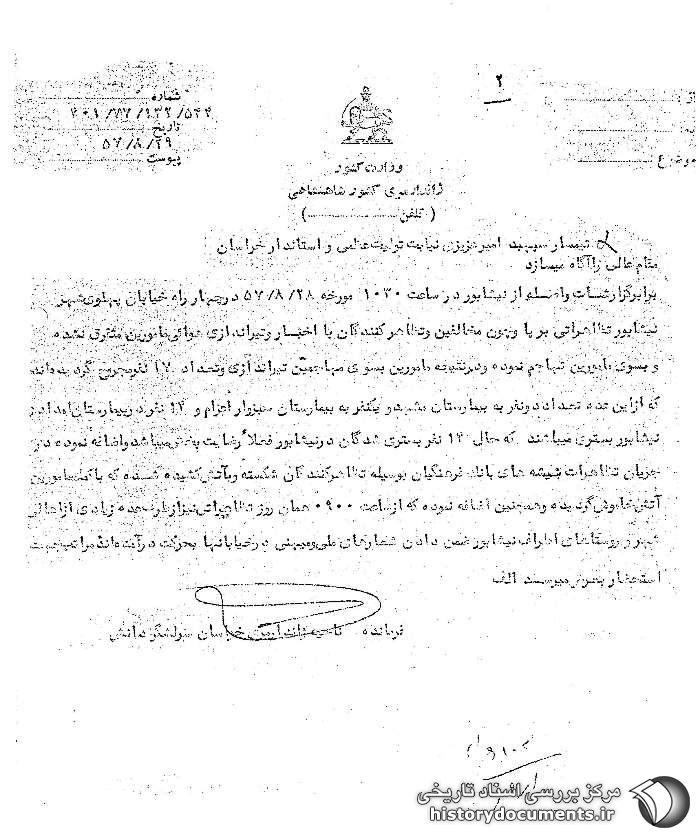 ۲
شماره ۴۰۱/۷۷/۹۳۲/۵۴۴
تاریخ ۵۷/۸/۲۹
پیوست
از
به
موضوع
وزارت کشور
ژاندارمری کشور شاهنشاهی
( تلفن )
تیمسار سپهبد امیر عزیزی نیابت تولیت عظمی و استاندار خراسان
مقام عالی را آگاه میسازد
برابر گزارشات واصله از نیشابور در ساعت ۱۰۳۰ مورخه ۵۷/۸/۲۸ در چهار راه خیابان پهلوی شهر
نیشابور تظاهراتی بر پا و چون مخالفین و تظاهر کنندگان با اخطار و تیراندازی هوائی مامورین متفرق نشده
و بسوی مامورین تهاجم نموده و در نتیجه مامورین بسوی مهاجمین تیراندازی و تعداد ۱۷ نفر مجروح گردیده‌اند
که از این عده تعداد دو نفر به بیمارستان مشهد و یکنفر به بیمارستان سبزوار اعزام و ۱۴ نفر در بیمارستان امداد
نیشابور بستری میباشند که حال ۱۴ نفر بستری شدگان در نیشابور فعلا رضایت بخش میباشد و اضافه نموده در
جریان تظاهرات شیشه های بانک فرهنگیان بوسیله تظاهر کنندگان شکسته و بآتش کشیده شده که با کمک مامورین
آتش خاموش گردیده و همچنین اضافه نموده که از ساعت ۰۹۰۰ همان روز تظاهراتی نیز از طرف عده زیادی از اهالی
شهر و روستاهای اطراف نیشابور ضمن دادن شعارهای ملی و میهنی در خیابانها بحرکت در آمده‌اند مراتب جهت
استحضار بعرض میرسد الف
فرمانده ناحیه ژاندارمری خراسان سرلشگر دانش
مرکز بررسی اسناد تاریخی
historydocuments.ir